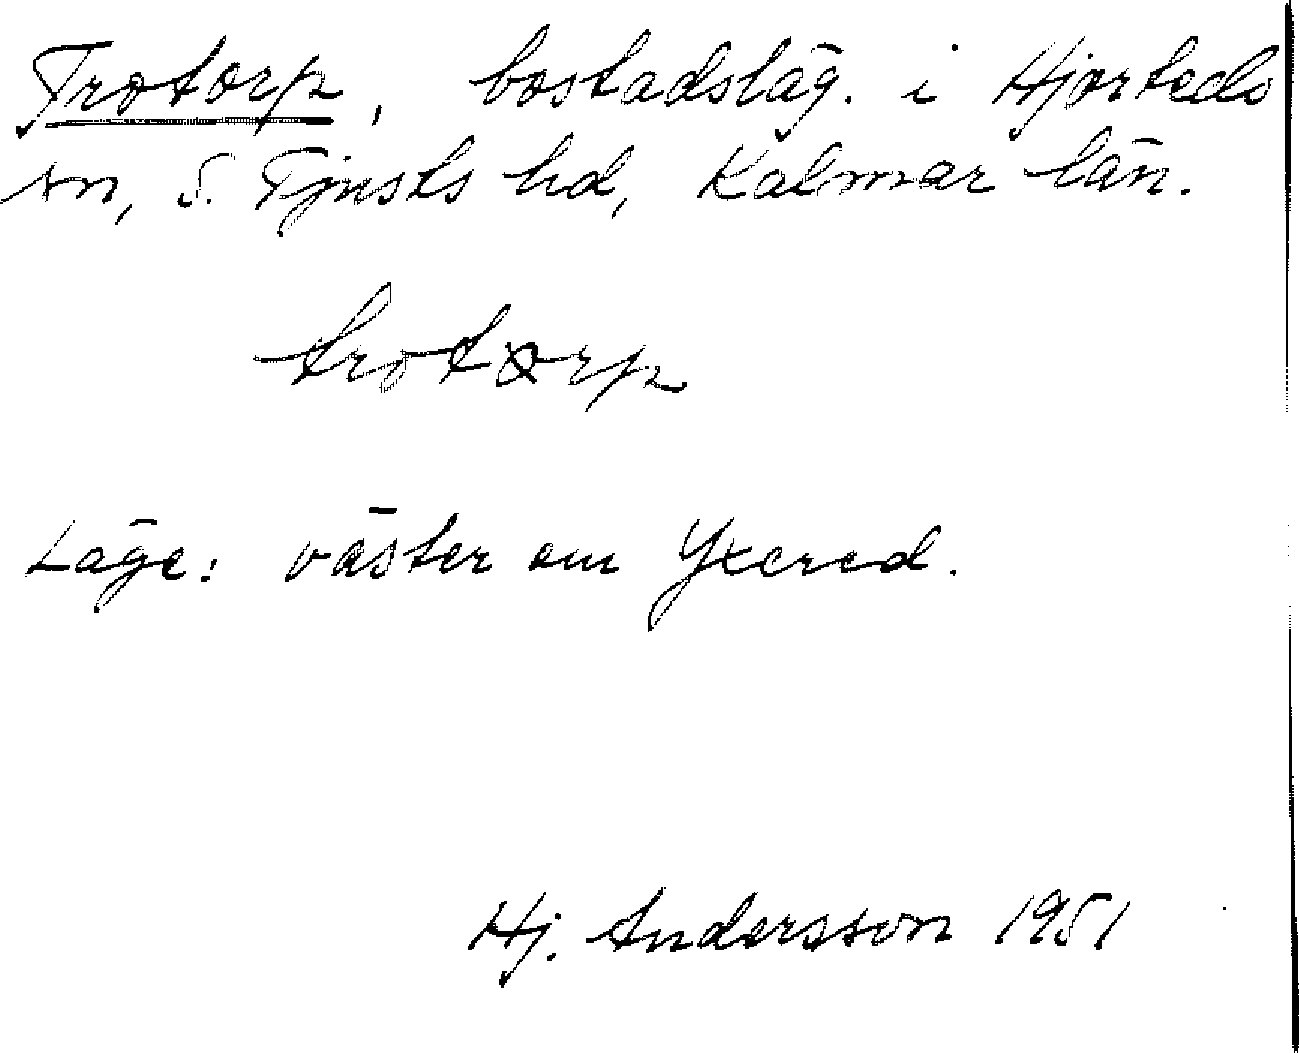 Trotorp, bostadsläg. i Hjorteds
sn, S. Tjusts hd, Kalmar län.
trotorp
Läge: väster om Yxered.
Hj. Andersson 1951